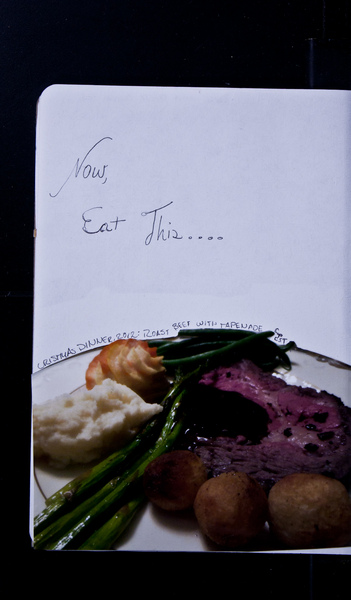 Now,
Eat This....
CRISTMAS DINNER, 2012: ROAST BEEF WITH TAPENADE